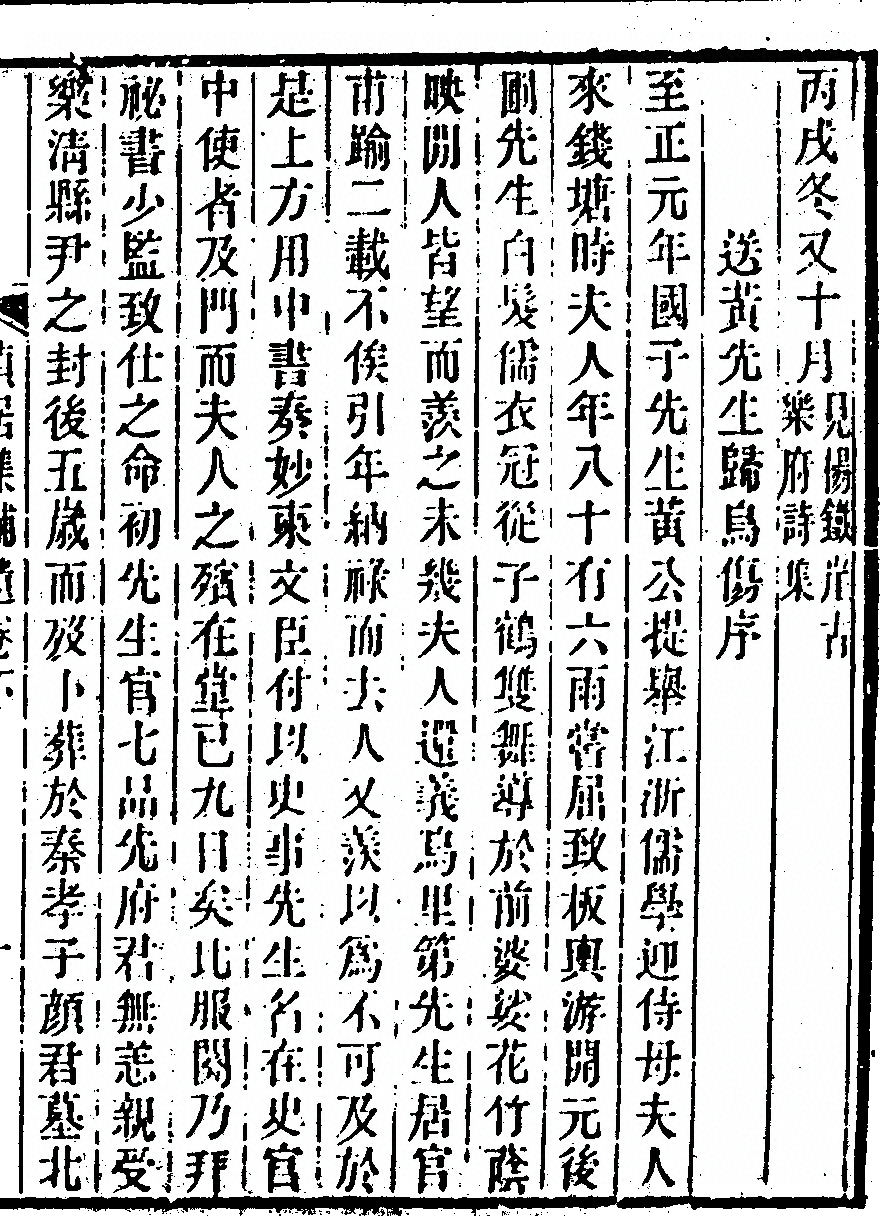 丙戌冬又十月見楊鐵崖古樂府詩集
送黃先生歸烏傷序
至正元年國子先生黃公提舉江浙儒學迎侍母夫人
來錢塘時夫人年八十有六雨嘗屈致板輿游開元後
圃先生白髮儒衣冠從子鶴雙舞導於前婆娑花竹蔭
映閒人皆望而羨之未幾夫人還義烏里第先生居官
甫踰二載不俟引年納祿而去人又羨以為不可及於
是上方用中書奏妙柬文臣付以史事先生名在史官
中使者及門而夫人之殯在堂已九日矣比服闋乃拜
祕書少監致仕之命初先生官七品先府君無恙親受
樂清縣尹之封後五歲而歿卜葬於秦孝子顏君墓北
貞居集補遺卷下